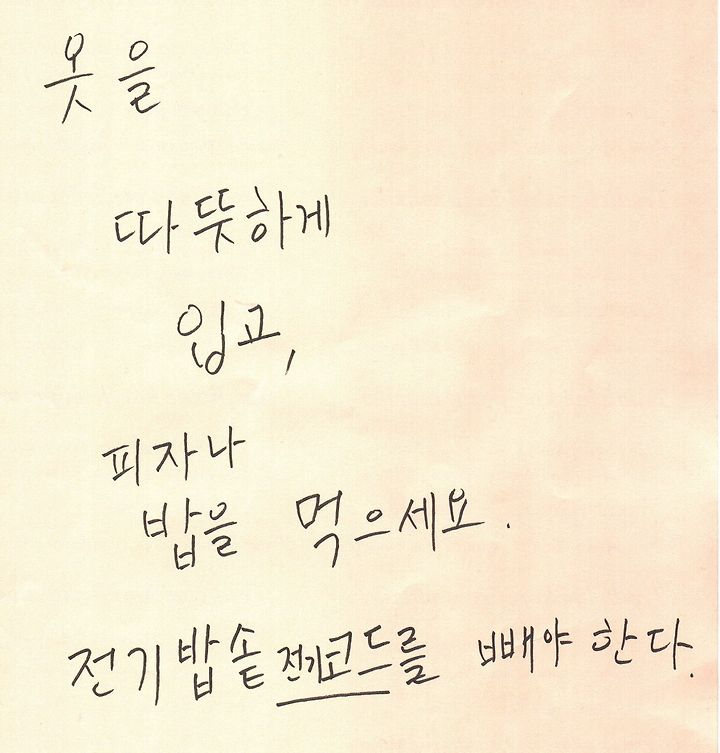 옷을
따뜻하게
입고,
피자나
밥을 먹으세요.
전기밥솥 전기코드를 빼야 한다.